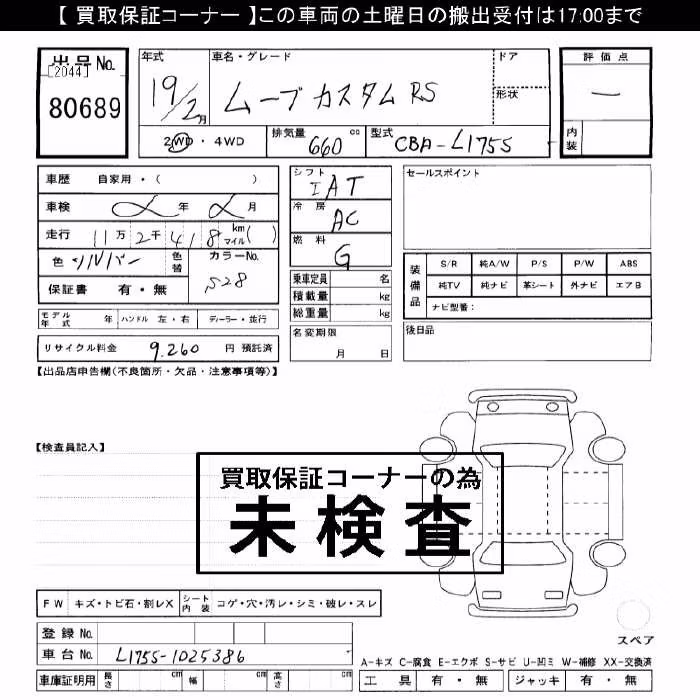 【 買取保証コーナー 】この車両の土曜日の搬出受付は17:00まで
出品No.
[2044]
80689
年式
19/2月
車名・グレード
ムーブカスタム RS
ドア
形状
評価点
―
内装
2WD・4WD
排気量 660 cc
型式 CBA-L175S
車歴 自家用・( )
車検 年 月
走行 11万2千418 km マイル( )
色 シルバー 色替
カラーNo. S28
保証書 有・無
モデル年式 年 ハンドル 左・右 ディーラー・並行
リサイクル料金 9,260 円 預託済
シフト IAT
冷房 AC
燃料 G
乗車定員 名
積載量 kg
総重量 kg
名変期限
月 日
セールスポイント
装備品
S/R 純A/W P/S P/W ABS
純TV 純ナビ 革シート 外ナビ エアB
ナビ型番：
後日品
【出品店申告欄(不良箇所・欠品・注意事項等)】
【検査員記入】
買取保証コーナーの為
未検査
FW キズ・トビ石・割レX シート内装 コゲ・穴・汚レ・シミ・破レ・スレ
登録No.
車台No. L175S-1025386
車庫証明用 長さ cm 幅 cm 高さ cm
スペア
A-キズ C-腐食 E-エクボ S-サビ U-凹ミ W-補修 XX-交換済
工具 有・無 ジャッキ 有・無